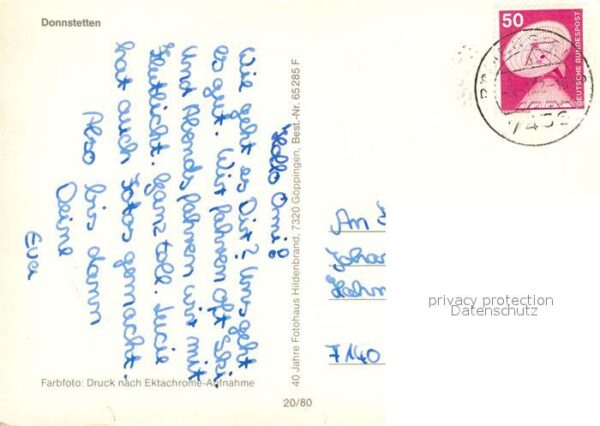 Donnstetten
50
DEUTSCHE BUNDESPOST
743
Hallo Omi!
Wie geht es Dir? Uns geht
es gut. Wir fahren oft Ski.
Und Abends fahren wir mit
Flutlicht. Ganz toll. Lucie
hat auch Fotos gemacht.
Also bis dann
Deine
Eva
40 Jahre Fotohaus Hildenbrand, 7320 Göppingen, Best.-Nr. 65285 F
An
7140
privacy protection
Datenschutz
Farbfoto: Druck nach Ektachrome-Aufnahme
20/80